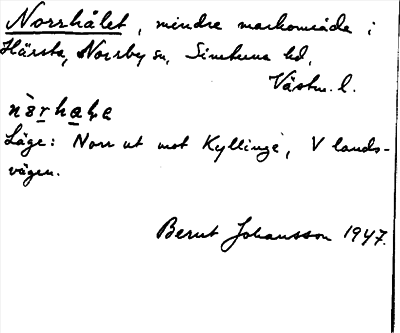 Norrhålet, mindre markområde i
Härsta, Norrby sn, Simtuna hd,
Västm. l.
Läge: Norr ut mot Kyllinge, V lands-
vägen.
Bernt Johansson 1947.